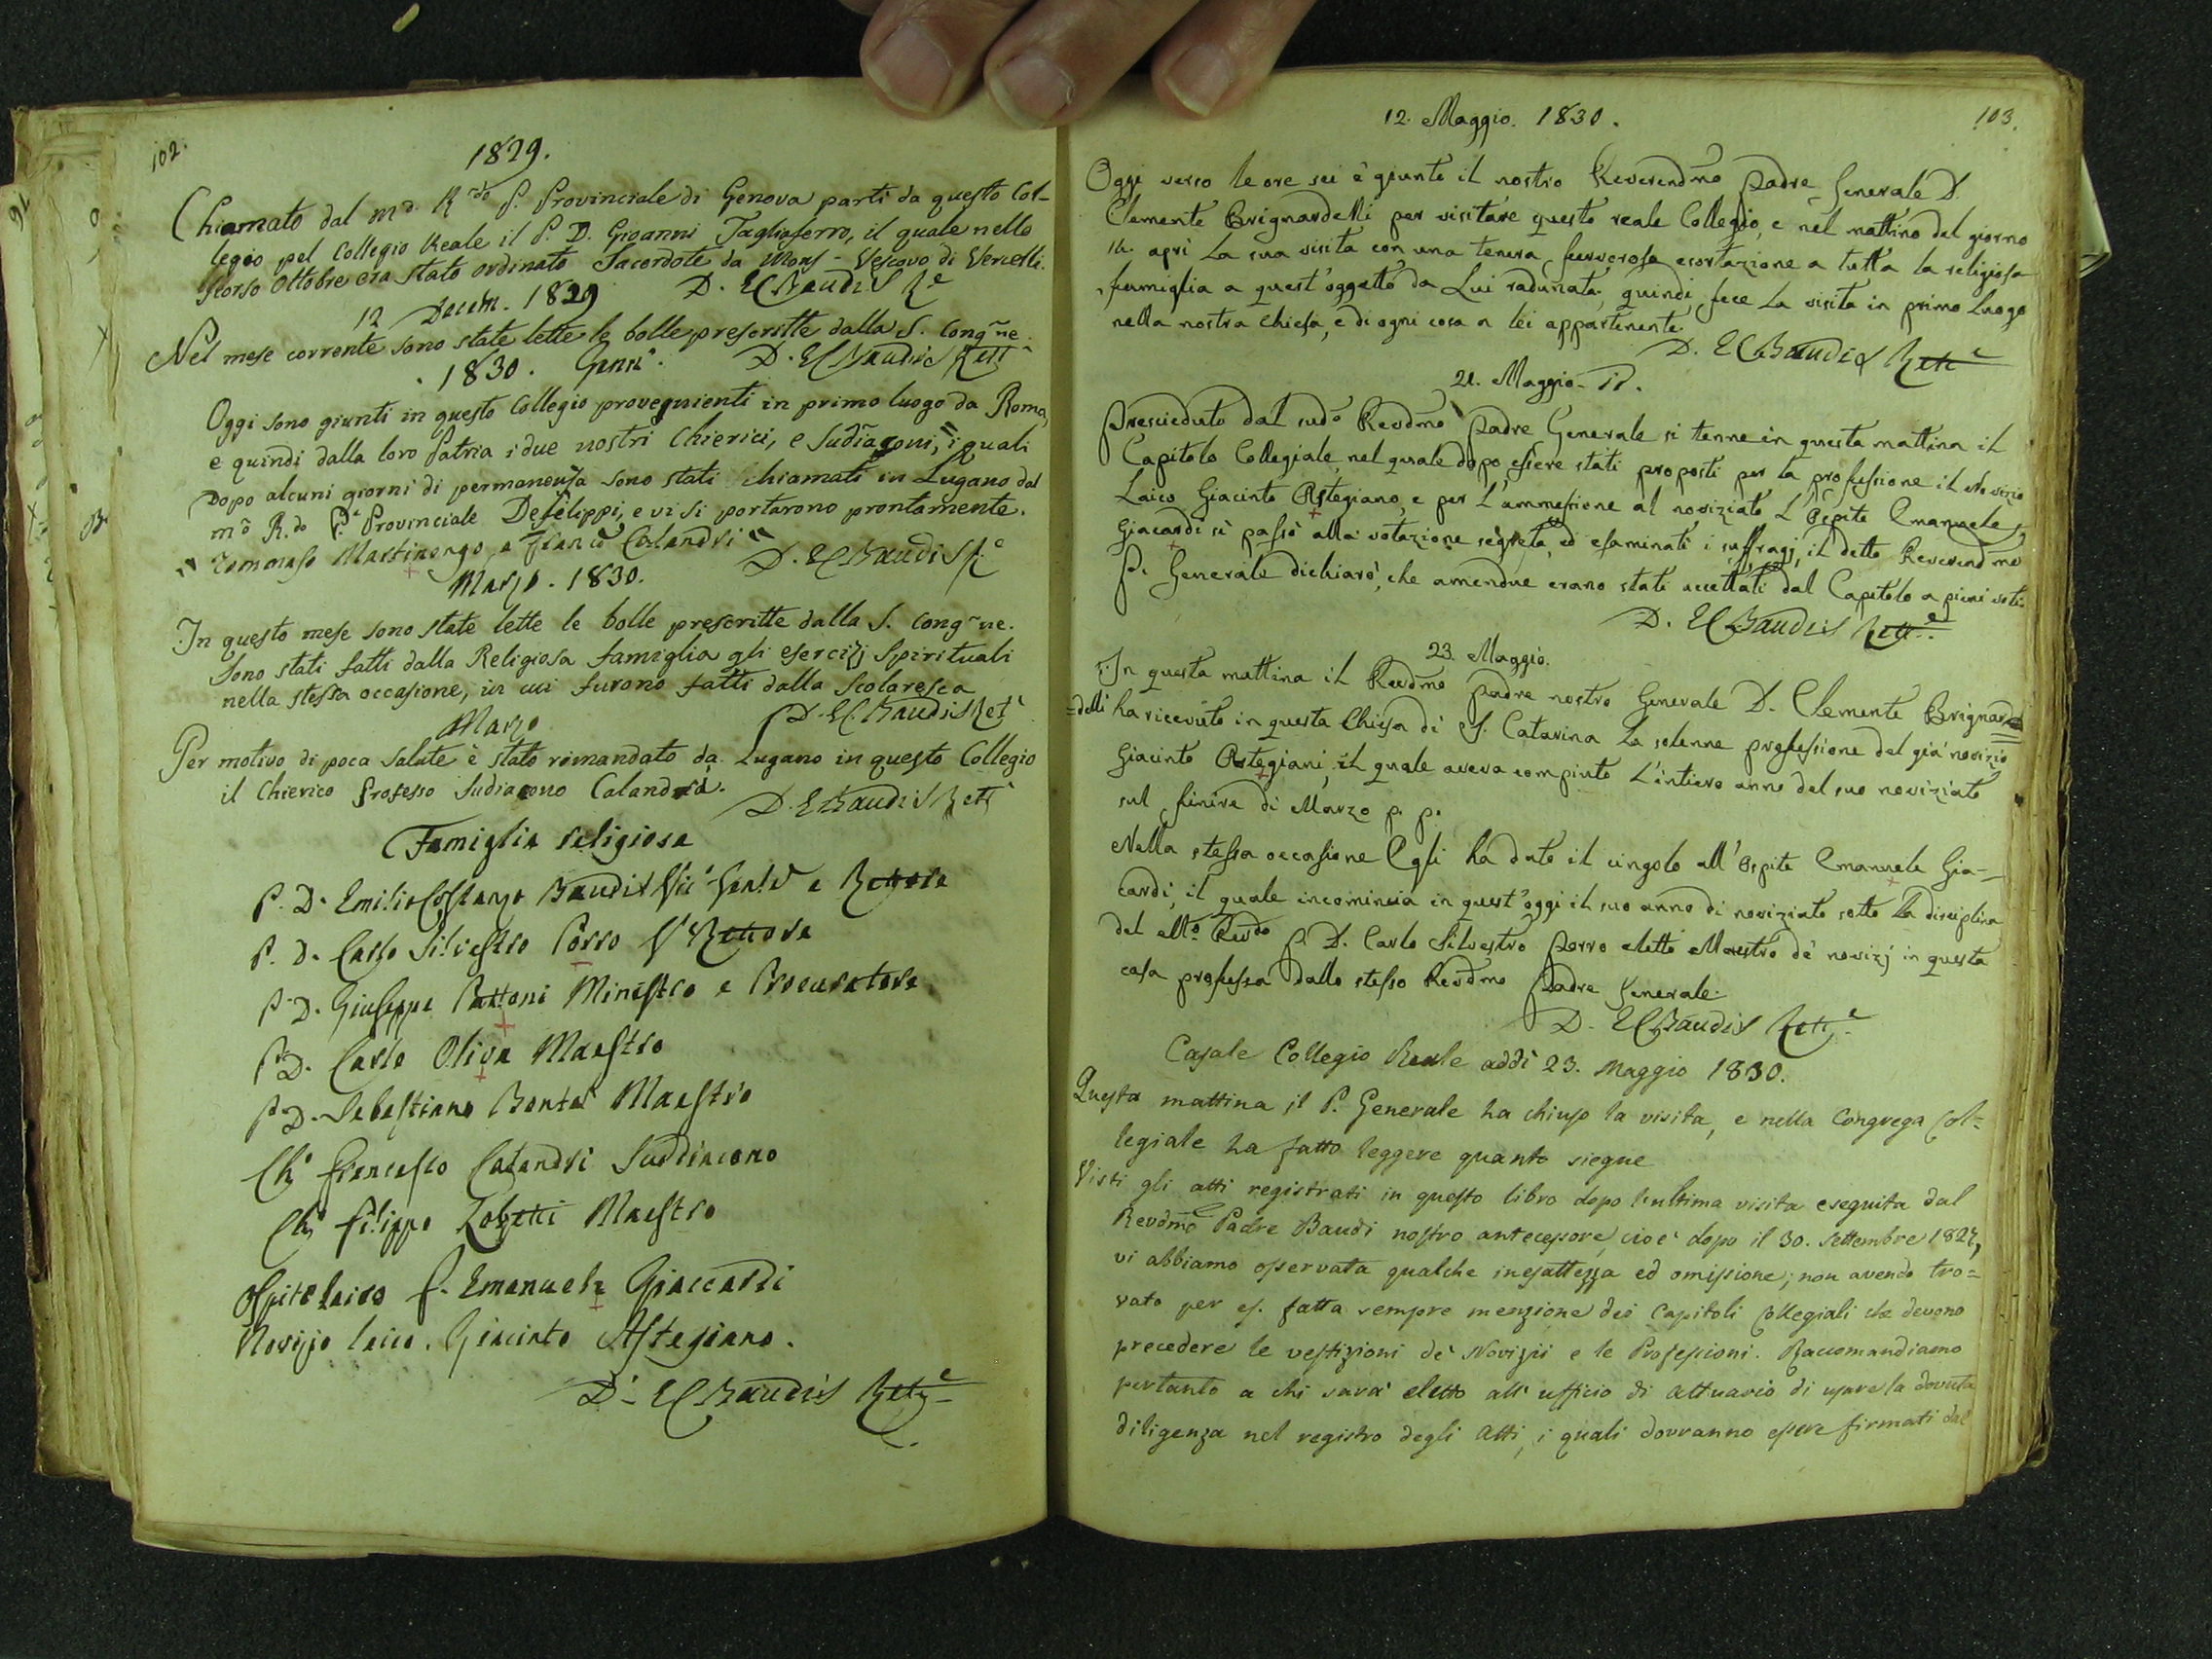 102.
1829.
Chiamato dal m.o R.do P. Provinciale di Genova partì da questo Col-
legio pel Collegio Reale il P. D. Gioanni Tagliaferro, il quale nello
scorso Ottobre era stato ordinato Sacerdote da Mons - Vescovo di Vercelli.
12 Decem. 1829 D. E C Baudis R.e
Nel mese corrente sono state lette le bolle prescritte dalla S. Cong~ne.
1830. Genn.o D. E C Baudis Rett.e
Oggi sono giunti in questo Collegio provegnienti in primo luogo da Roma,
e quindi dalla loro Patria i due nostri Chierici, e Sudiaconi, " i quali
Dopo alcuni giorni di permanenza sono stati chiamati in Lugano dal
m.o R.do P.e Provinciale Defilippi, e vi si portarono prontamente.
" Tommaso Martinengo, e Franc.o Calandri " D. E C Baudis R.e
Marzo. 1830.
In questo mese sono state lette le bolle prescritte dalla S. Cong~ne.
Sono stati fatti dalla Religiosa famiglia gli esercizj Spirituali
nella stessa occasione, in cui furono fatti dalla Scolaresca
Marzo D. E C. Baudis Ret.e
Per motivo di poca salute è stato rimandato da Lugano in questo Collegio
il Chierico Professo Sudiacono Calandra.
D. E C Baudis Rett.e
Famiglia religiosa
P. D. Emilio Costanzo Baudis Vic.o Gen.le e Rettore
P. D. Carlo Silvestro Porro V. Rettore
P. D. Giuseppe Pattoni Ministro e Procuratore
P. D. Carlo Oliva Maestro
P. D. Sebastiano Bontà Maestro
Ch.o Francesco Calandri Suddiacono
Ch.o Filippo Zobetti Maestro
Ospite laico f. Emanuele Giaccardi
Novizzo laico. Giacinto Astegiano.
D. E C Baudis Rett.e
103.
12. Maggio. 1830.
Oggi verso le ore sei è giunto il nostro Reverendmo Padre Generale D.
Clemente Brignardelli per visitare questo reale Collegio, e nel mattino del giorno
aprì la sua visita con una tenera fervorosa esortazione a tutta la religiosa
famiglia a quest'oggetto da Lui radunata, quindi fece la visita in primo luogo
nella nostra Chiesa, e di ogni cosa a lei appartenente.
D. E C Baudis Rett.e
21. Maggio. d.
Presieduto dal sud.o Revdmo Padre Generale si tenne in questa mattina il
Capitolo Collegiale, nel quale dopo essere stati proposti per la professione il Novizio
Laico Giacinto Astegiano, e per l'ammessione al noviziato l'Ospite Emanuele
Giacardi si passò alla votazione segreta, ed esaminati i suffragj, il detto Reverendmo
P. Generale dichiarò, che amendue erano stati accettati dal Capitolo a pieni voti.
D. E C Baudis Rett.e
23. Maggio.
In questa mattina il Revdmo Padre nostro Generale D. Clemente Brignar-
=delli ha ricevuto in questa Chiesa di S. Catarina la solenne professione del già novizio
Giacinto Astegiani, il quale aveva compiuto l'intiero anno del suo noviziato
sul finire di Marzo p. p.
Nella stessa occasione Egli ha dato il cingolo all'Ospite Emanuele Gia-
cardi, il quale incomincia in quest'oggi il suo anno di noviziato sotto la disciplina
del M.to Revdo P. D. Carlo Silvestro Porro eletto Maestro de' novizj in questa
casa professa dallo stesso Revdmo Padre Generale.
D. E C Baudis Rett.e
Casale Collegio Reale addì 23. Maggio 1830.
Questa mattina il P. Generale ha chiuso la visita, e nella Congrega Col=
legiale ha fatto leggere quanto siegue
Visti gli atti registrati in questo libro dopo l'ultima visita eseguita dal
Revdmo Padre Baudi nostro antecessore, cioè dopo il 30. Settembre 1827,
vi abbiamo osservata qualche inesattezza ed omissione; non avendo tro=
vato per es. fatta sempre menzione dei Capitoli Collegiali che devono
precedere le vestizioni de' Novizii e le Professioni. Raccomandiamo
pertanto a chi sarà eletto all'ufficio di Attuario di usare la dovuta
diligenza nel registro degli Atti, i quali dovranno essere firmati dal